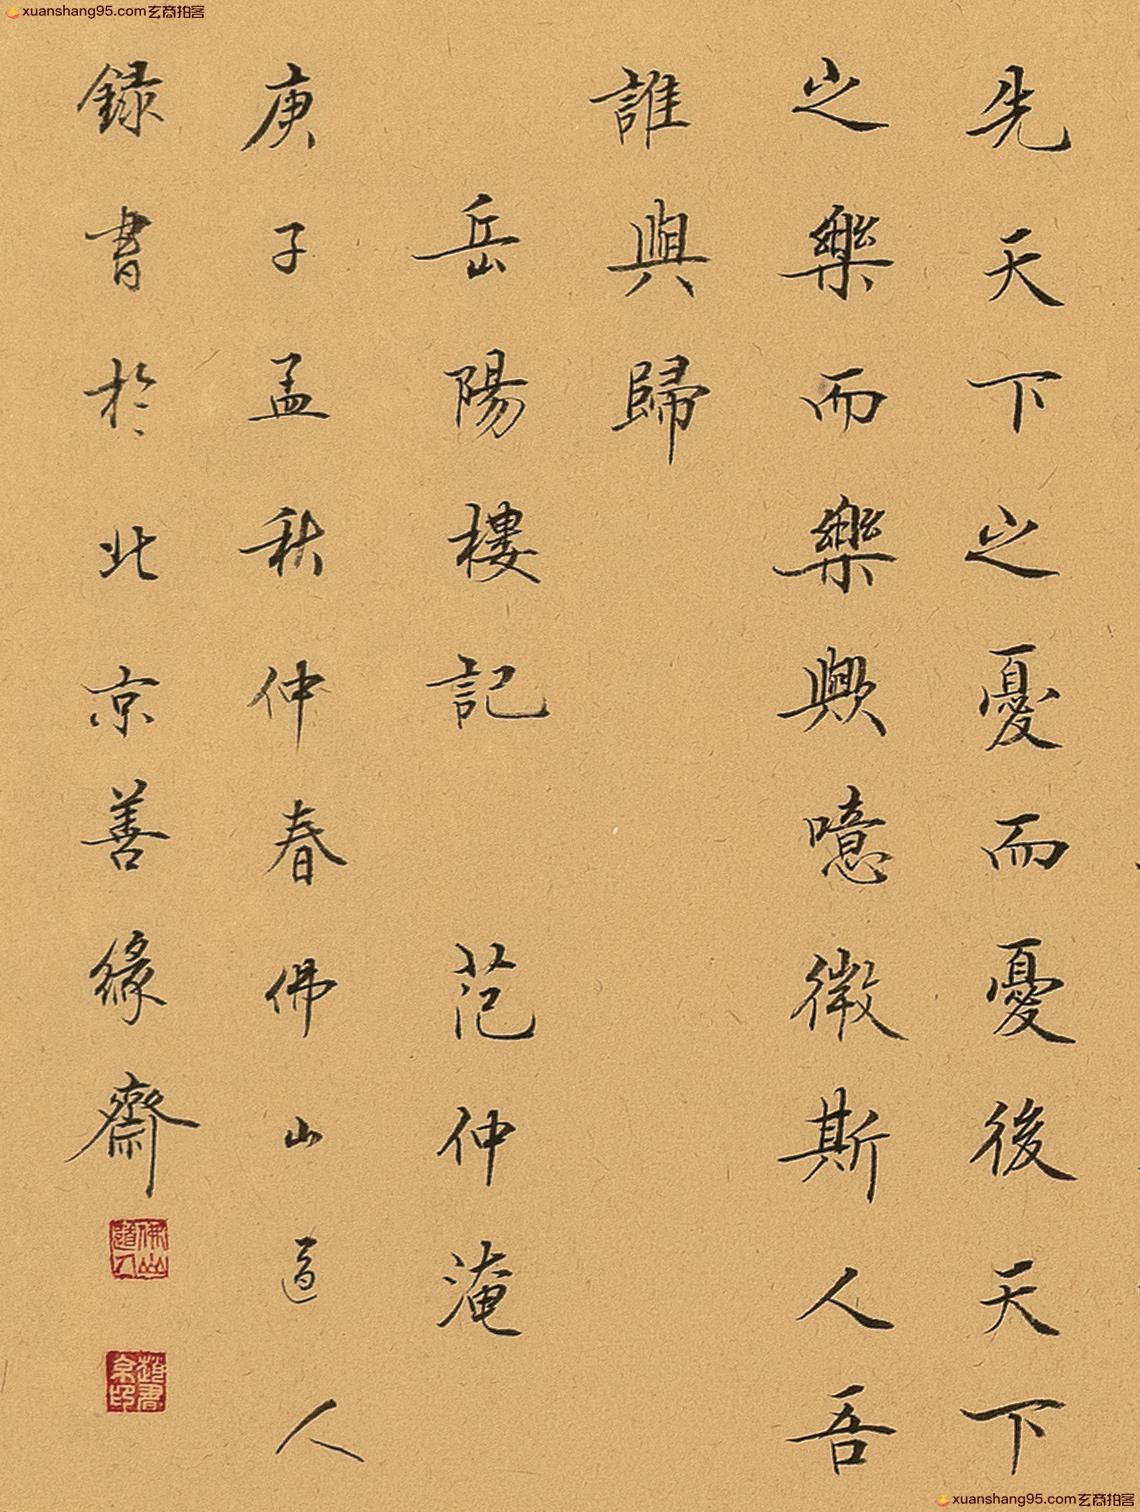 xuanshang95.com玄商拍客
先天下之憂而憂後天下
之樂而樂歟噫微斯人吾
誰與歸
岳陽樓記 范仲淹
庚子孟秋仲春佛山道人
録書於北京善緣齋
佛山道人
xuanshang95.com玄商拍客